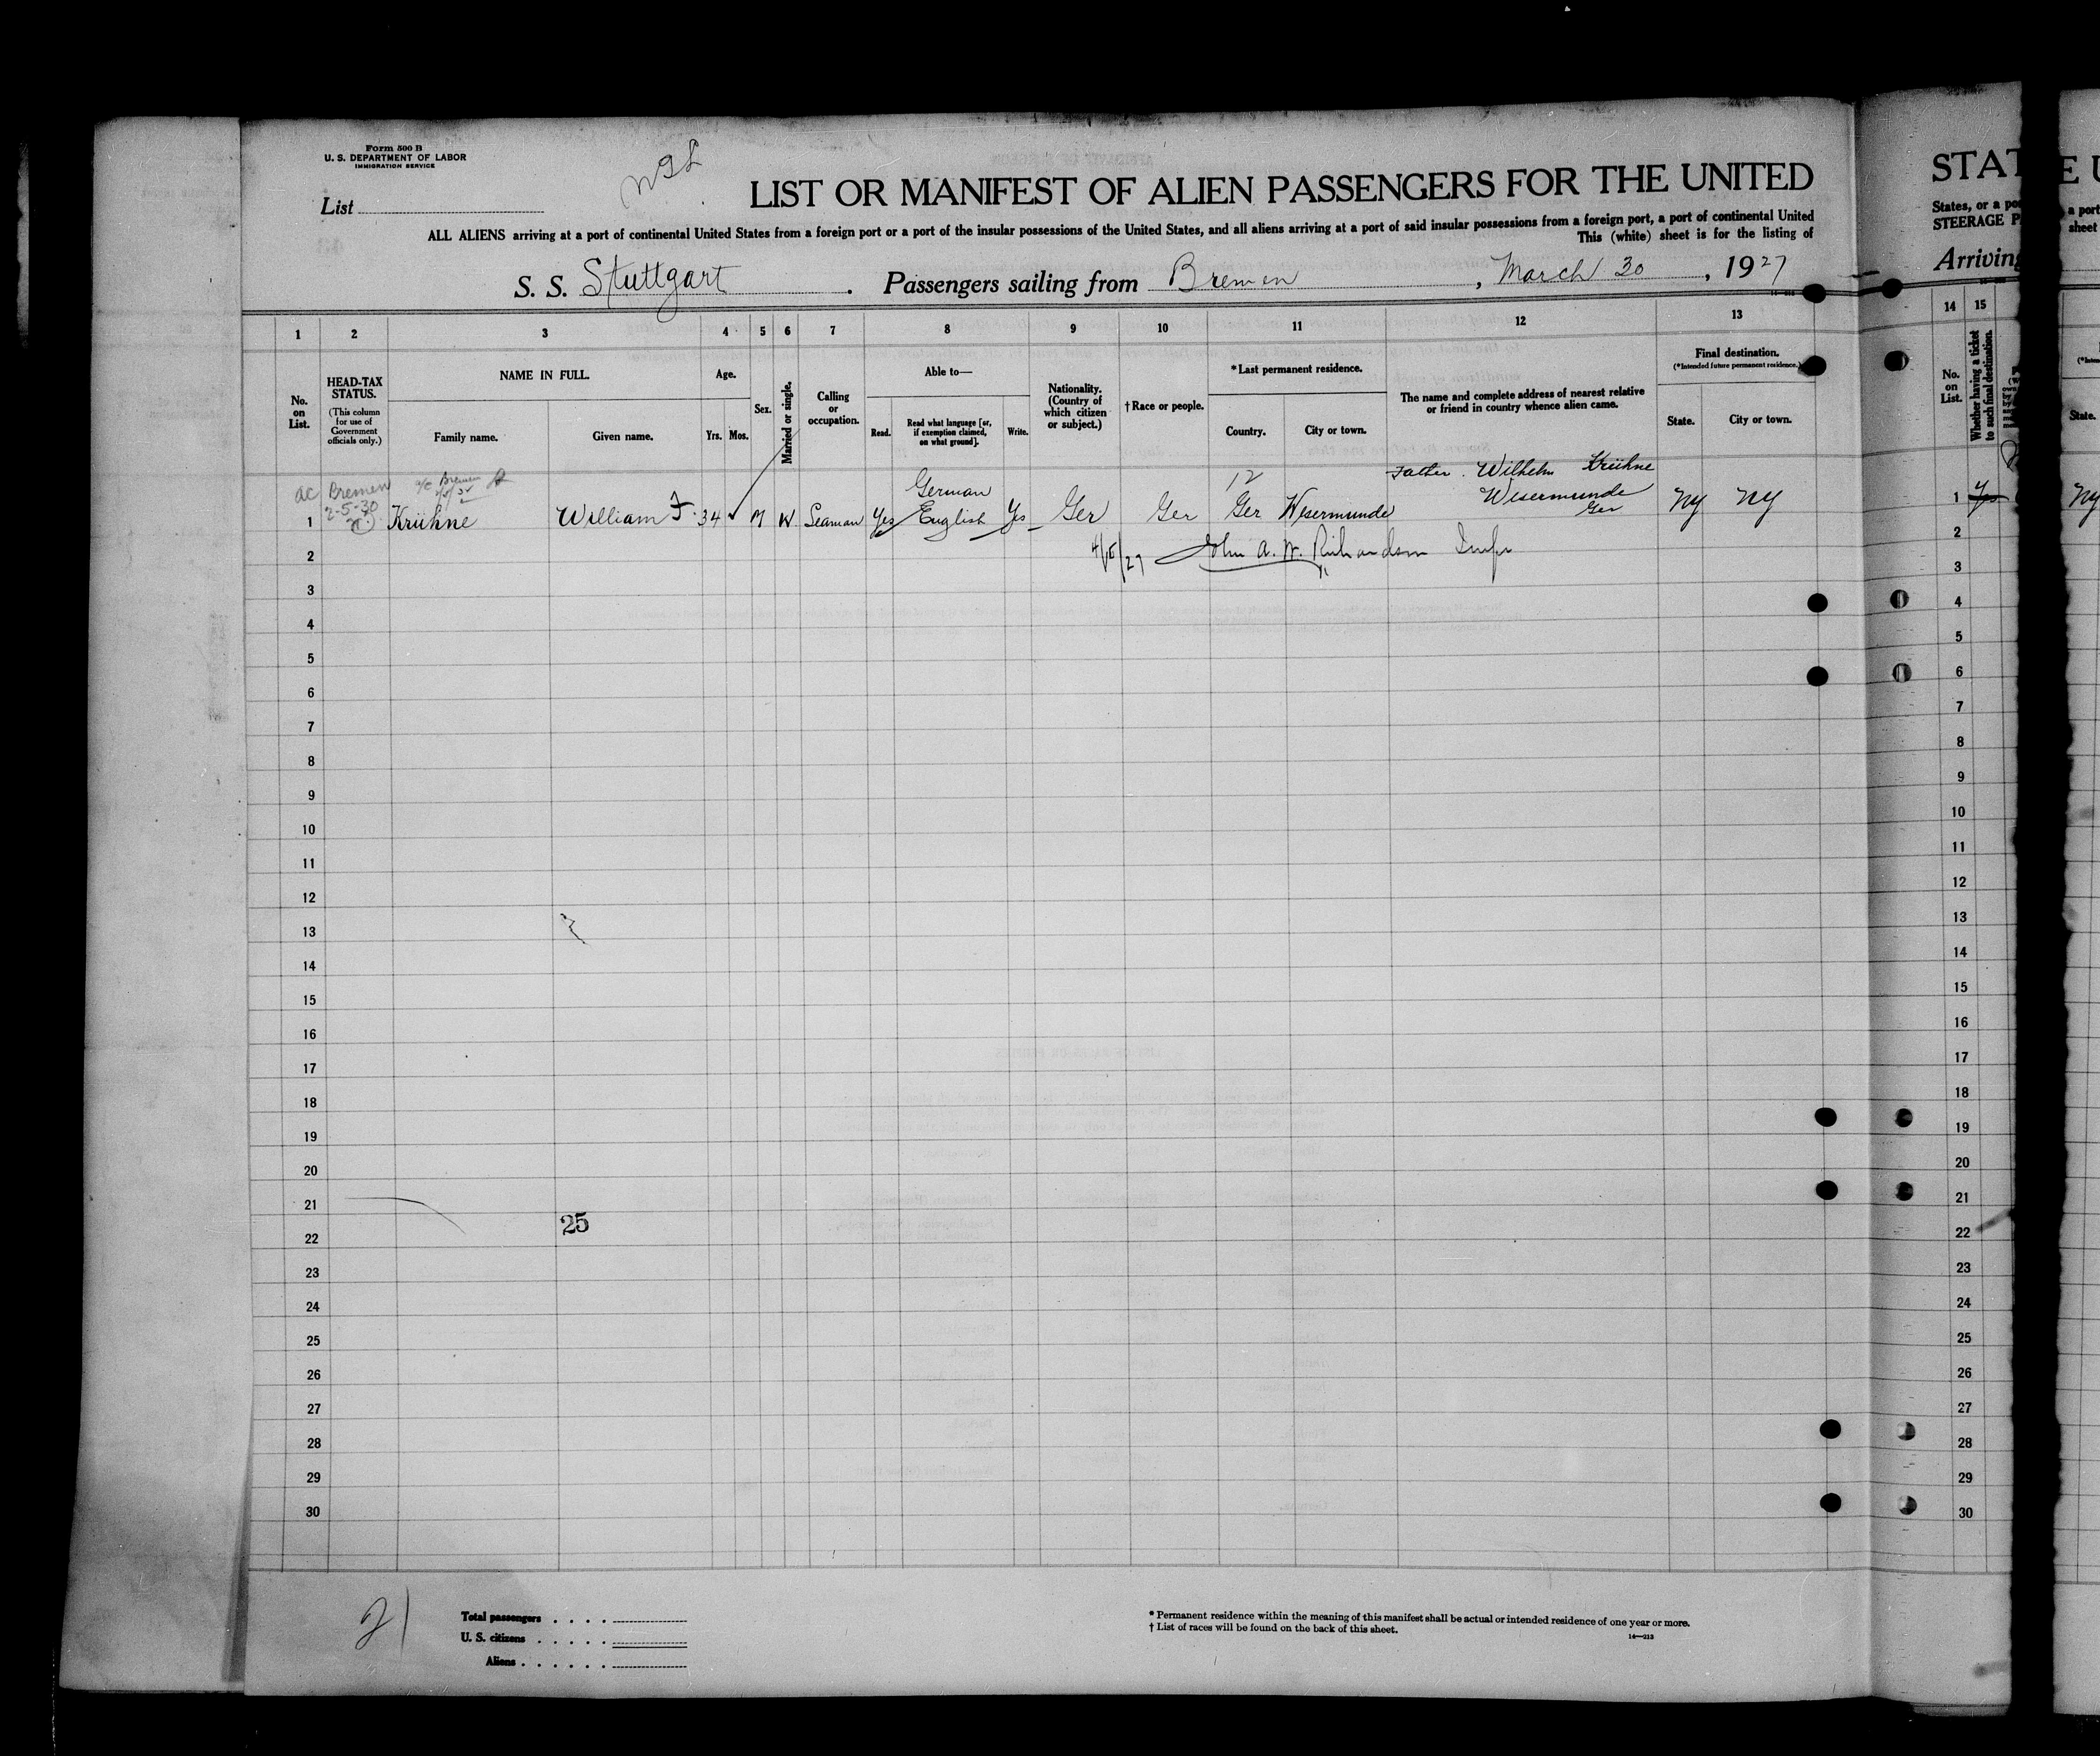 Form 500 B
U. S. DEPARTMENT OF LABOR
IMMIGRATION SERVICE
List
LIST OR MANIFEST OF ALIEN PASSENGERS FOR THE UNITED
ALL ALIENS arriving at a port of continental United States from a foreign port or a port of the insular possessions of the United States, and all aliens arriving at a port of said insular possessions from a foreign port, a port of continental United
This (white) sheet is for the listing of
S. S. Stuttgart . Passengers sailing from Bremen , March 30 , 1927
1 2 3 4 5 6 7 8 9 10 11 12 13
No. on List.
HEAD-TAX STATUS.
(This column for use of Government officials only.)
NAME IN FULL.
Family name. Given name.
Age.
Yrs. Mos.
Sex.
Married or single.
Calling or occupation.
Able to—
Read. Read what language [or, if exemption claimed, on what ground]. Write.
Nationality. (Country of which citizen or subject.)
†Race or people.
*Last permanent residence.
Country. City or town.
The name and complete address of nearest relative or friend in country whence alien came.
Final destination.
(*Intended future permanent residence.)
State. City or town.
ac Bremen
2-5-30
German
12
Father . Wilhelm Krühne
Wesermunde
Ger
1 Krühne William F. 34 M W Seaman Yes English Yes Ger Ger Ger Wesermunde NY NY
4/15/27 John A. W. Richardson
2
3
4
5
6
7
8
9
10
11
12
13
14
15
16
17
18
19
20
21
25
22
23
24
25
26
27
28
29
30
21
Total passengers
U. S. citizens
Aliens
* Permanent residence within the meaning of this manifest shall be actual or intended residence of one year or more.
† List of races will be found on the back of this sheet.
14—213
STAT
States, or a po
STEERAGE P
Arriving
14 15
No. on List.
Whether having a ticket to such final destination.
1 Yes
2
3
4
5
6
7
8
9
10
11
12
13
14
15
16
17
18
19
20
21
22
23
24
25
26
27
28
29
30
E U
a port
sheet
State.
NY